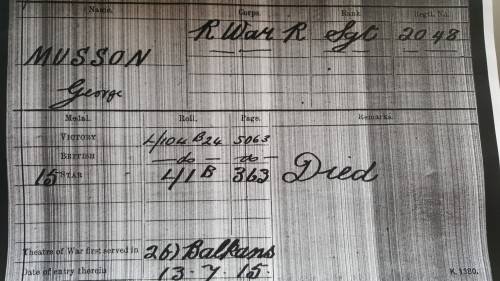 Name. Corps. Rank. Regtl. No.
MUSSON R War R Sgt 2048
George
Medal. Roll. Page. Remarks.
VICTORY L/104 B24 5063
BRITISH —do— —do—
15 STAR L/1 B 363 Died
Theatre of War first served in 2b) Balkans
Date of entry therein 13.7.15. K. 1380.